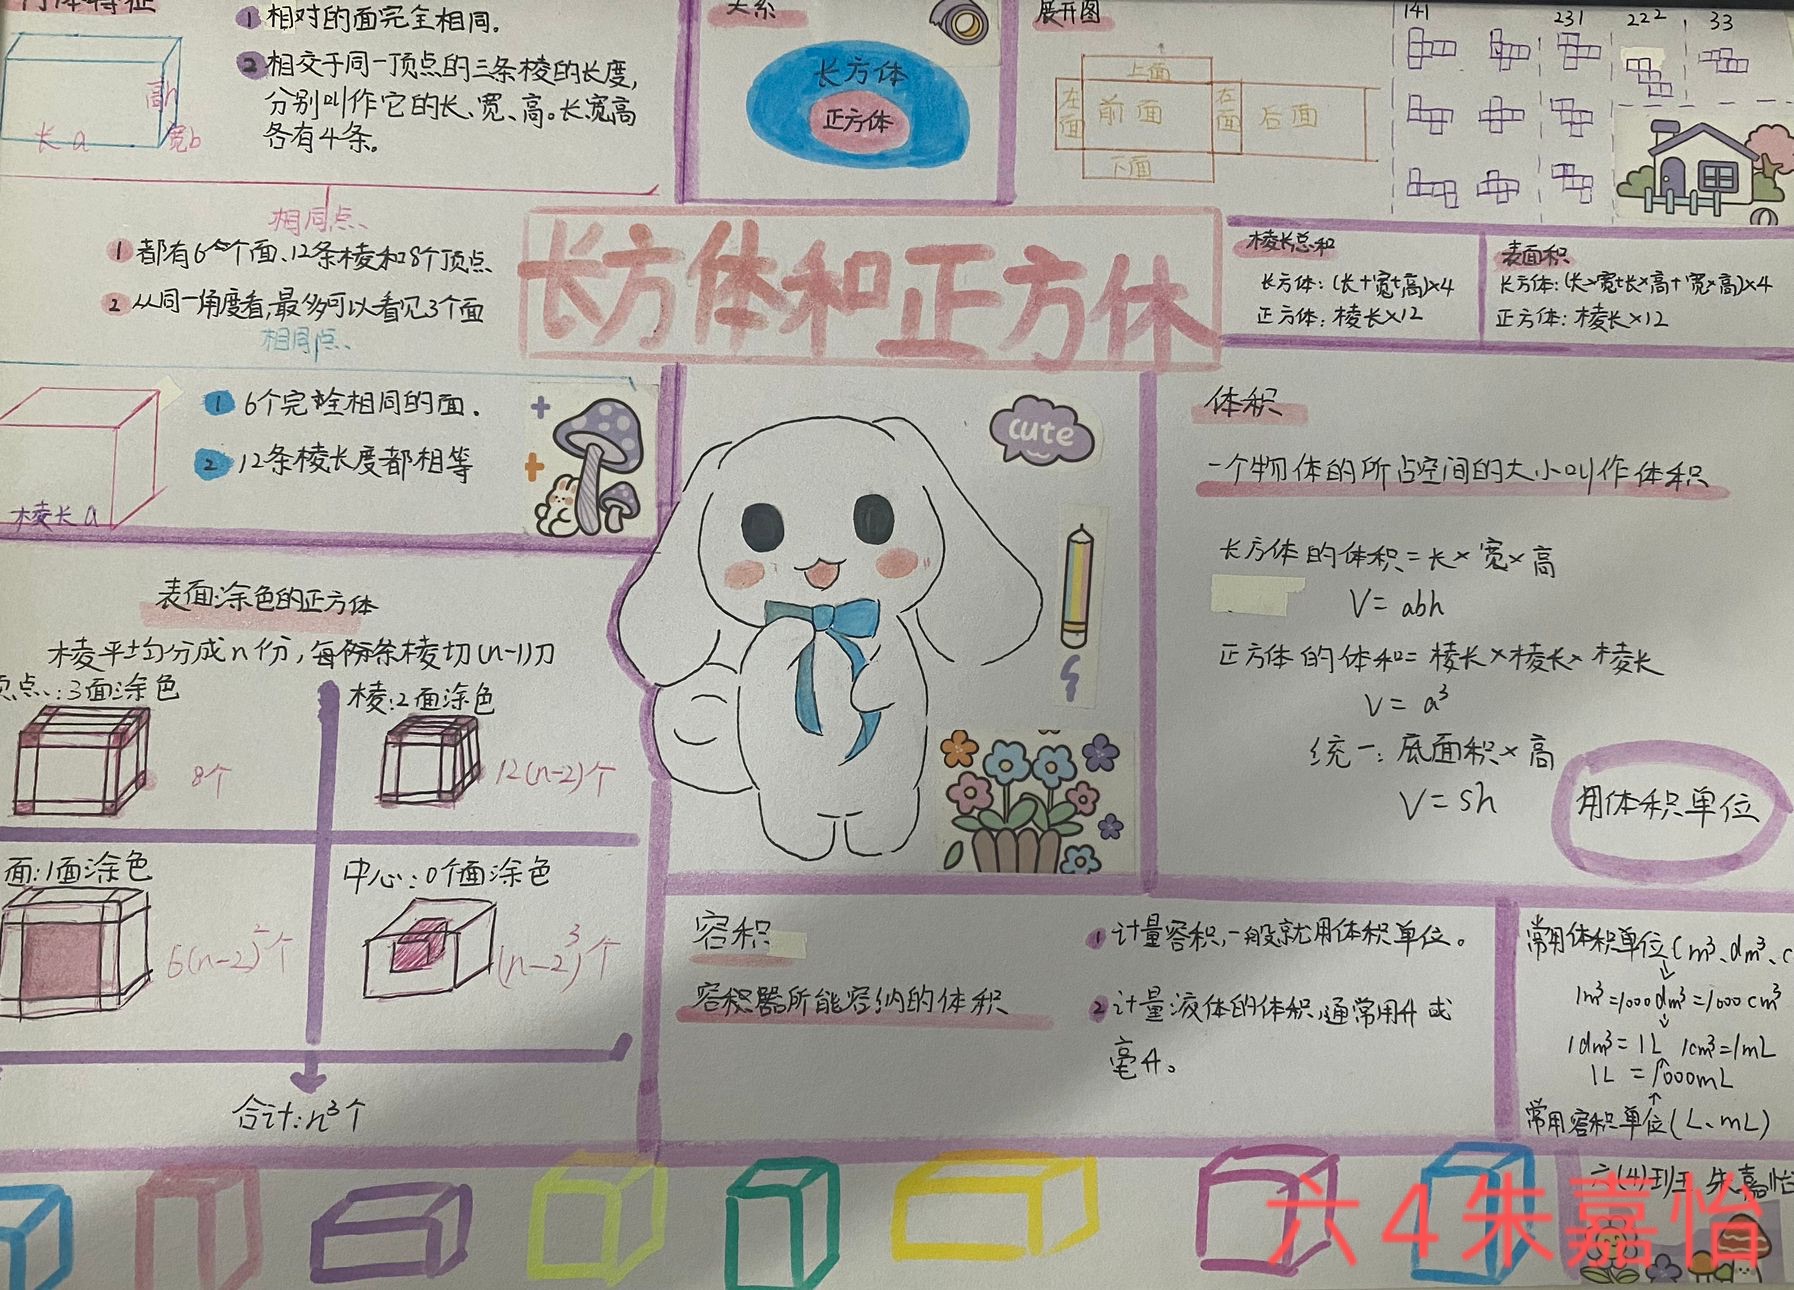 ① 相对的面完全相同。
② 相交于同一顶点的三条棱的长度,
分别叫作它的长、宽、高。长宽高
各有4条。
高h
长 a
宽b
相同点
① 都有6个面、12条棱和8个顶点
② 从同一角度看,最多可以看见3个面
相同点、
① 6个完全相同的面.
② 12条棱长度都相等
棱长 a
关系
长方体
正方体
展开图
上面
左面
前面
右面
后面
下面
141
231
222
33
长方体和正方体
棱长总和
长方体:(长+宽+高)×4
正方体:棱长×12
表面积
长方体:(长×宽+长×高+宽×高)×4
正方体:棱长×12
cute
体积
一个物体的所占空间的大小叫作体积
长方体的体积=长×宽×高
V= abh
正方体的体和=棱长×棱长×棱长
V= a³
统一:底面积×高
V=sh
用体积单位
表面涂色的正方体
棱平均分成n份,每条棱切(n-1)刀
顶点:3面涂色
8个
棱:2面涂色
12(n-2)个
面:1面涂色
6(n-2)²个
中心:0个面涂色
(n-2)³个
合计:n³个
容积
容积器所能容纳的体积
① 计量容积,一般就用体积单位。
② 计量液体的体积,通常用升或
毫升。
常用体积单位(m³、dm³、c
1m³=1000dm³=1000cm³
1dm³=1L 1cm³=1mL
1L=1000mL
常用容积单位(L、mL)
六(4)班 朱嘉怡
六4朱嘉怡